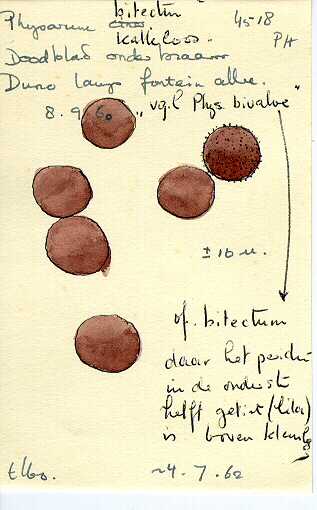 bitectum 4518
Physarum
Kalkloos. PH
Doodblad onder braam
Duno langs fontein allee.
8.9.60 "vgl Phys bivalve"
± 10 u.
of bitectum
daar het peridium
in de onderste
helft getint (lila)
is boven
Elbo. ~4.7.62